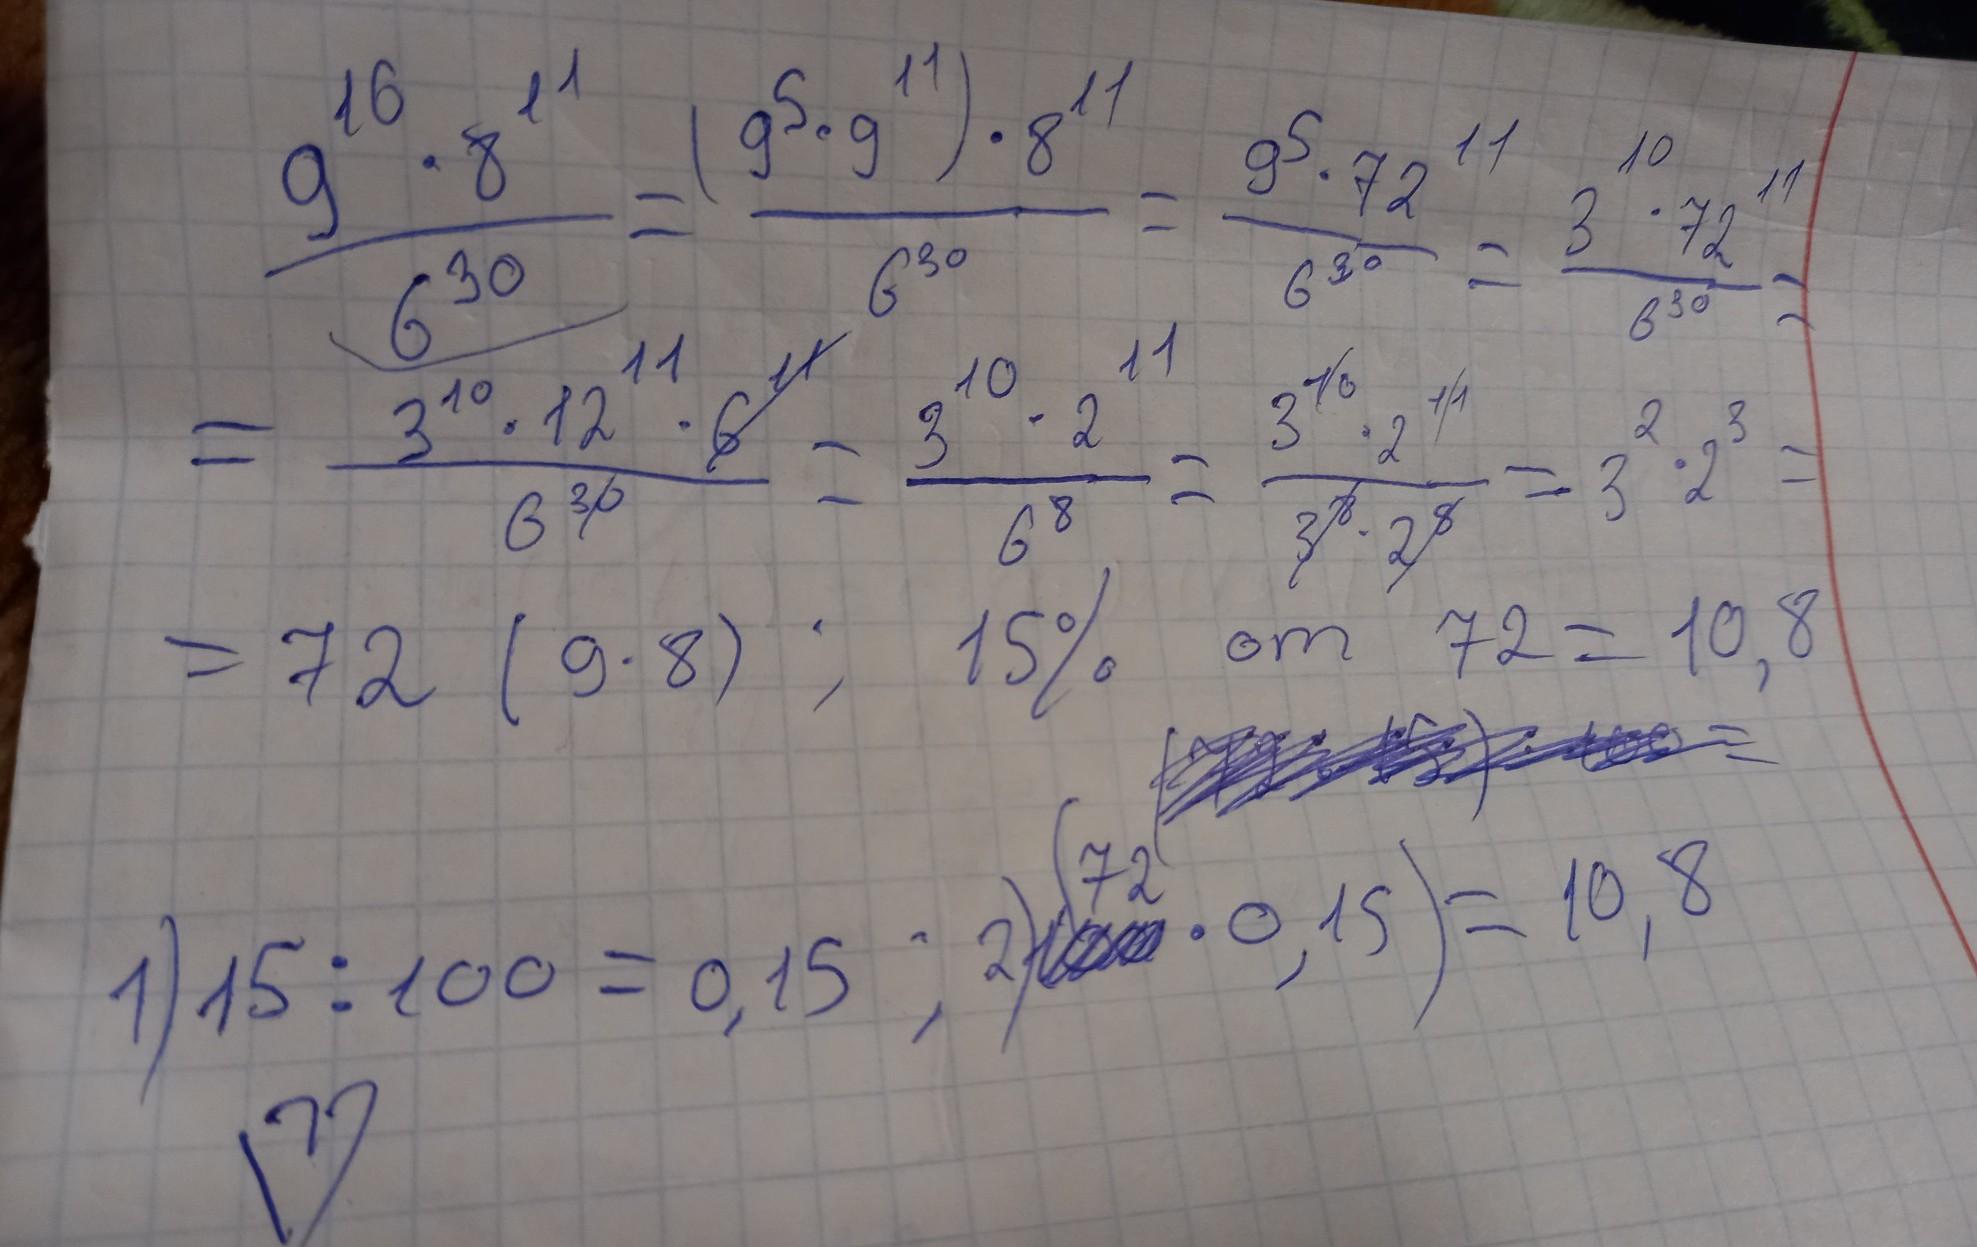 9^16 · 8^11 / 6^30 = (9^5 · 9^11) · 8^11 / 6^30 = 9^5 · 72^11 / 6^30 = 3^10 · 72^11 / 6^30 =
= 3^10 · 12^11 · 6^11 / 6^30 = 3^10 · 2^11 / 6^8 = 3^10 · 2^11 / 3^8 · 2^8 = 3^2 · 2^3 =
= 72 (9 · 8) ; 15% от 72 = 10,8
=
1) 15 : 100 = 0,15 ; 2) (72 · 0,15) = 10,8